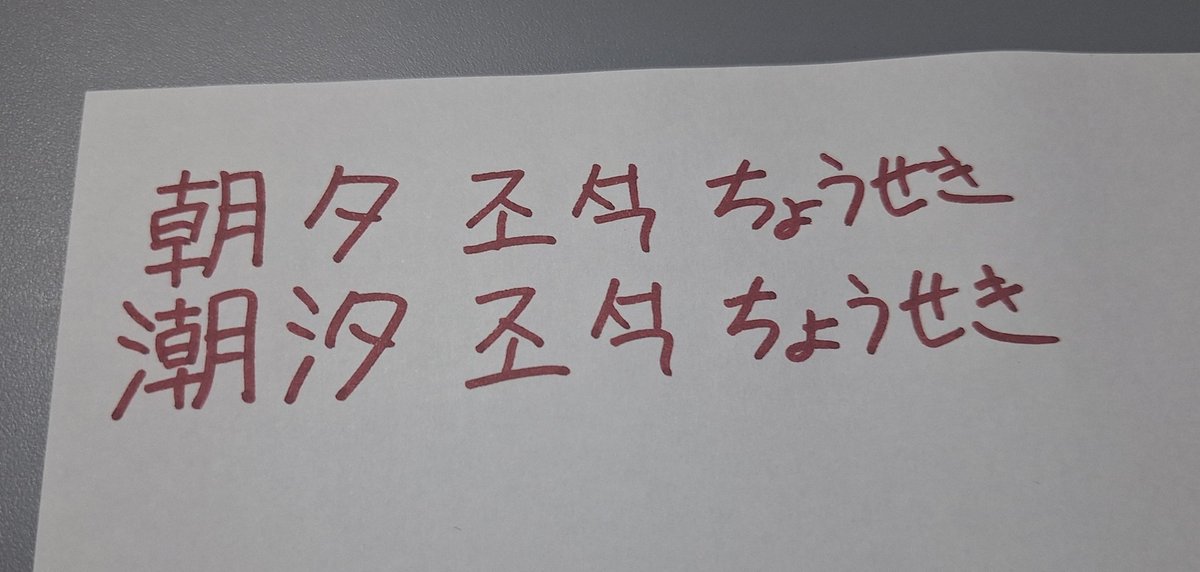 朝夕 조석 ちょうせき
潮汐 조석 ちょうせき